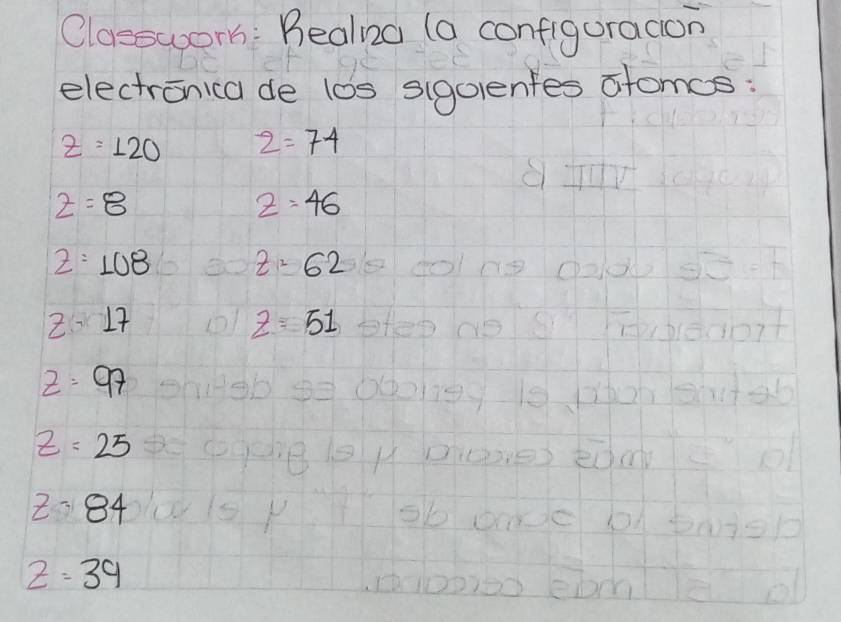 Classwork: Realiza la configuración
electrónica de los siguientes átomos:
Z = 120 Z = 74
Z = 8 Z = 46
Z = 108 Z = 62
Z = 17 Z = 51
Z = 97
Z = 25
Z = 84
Z = 39